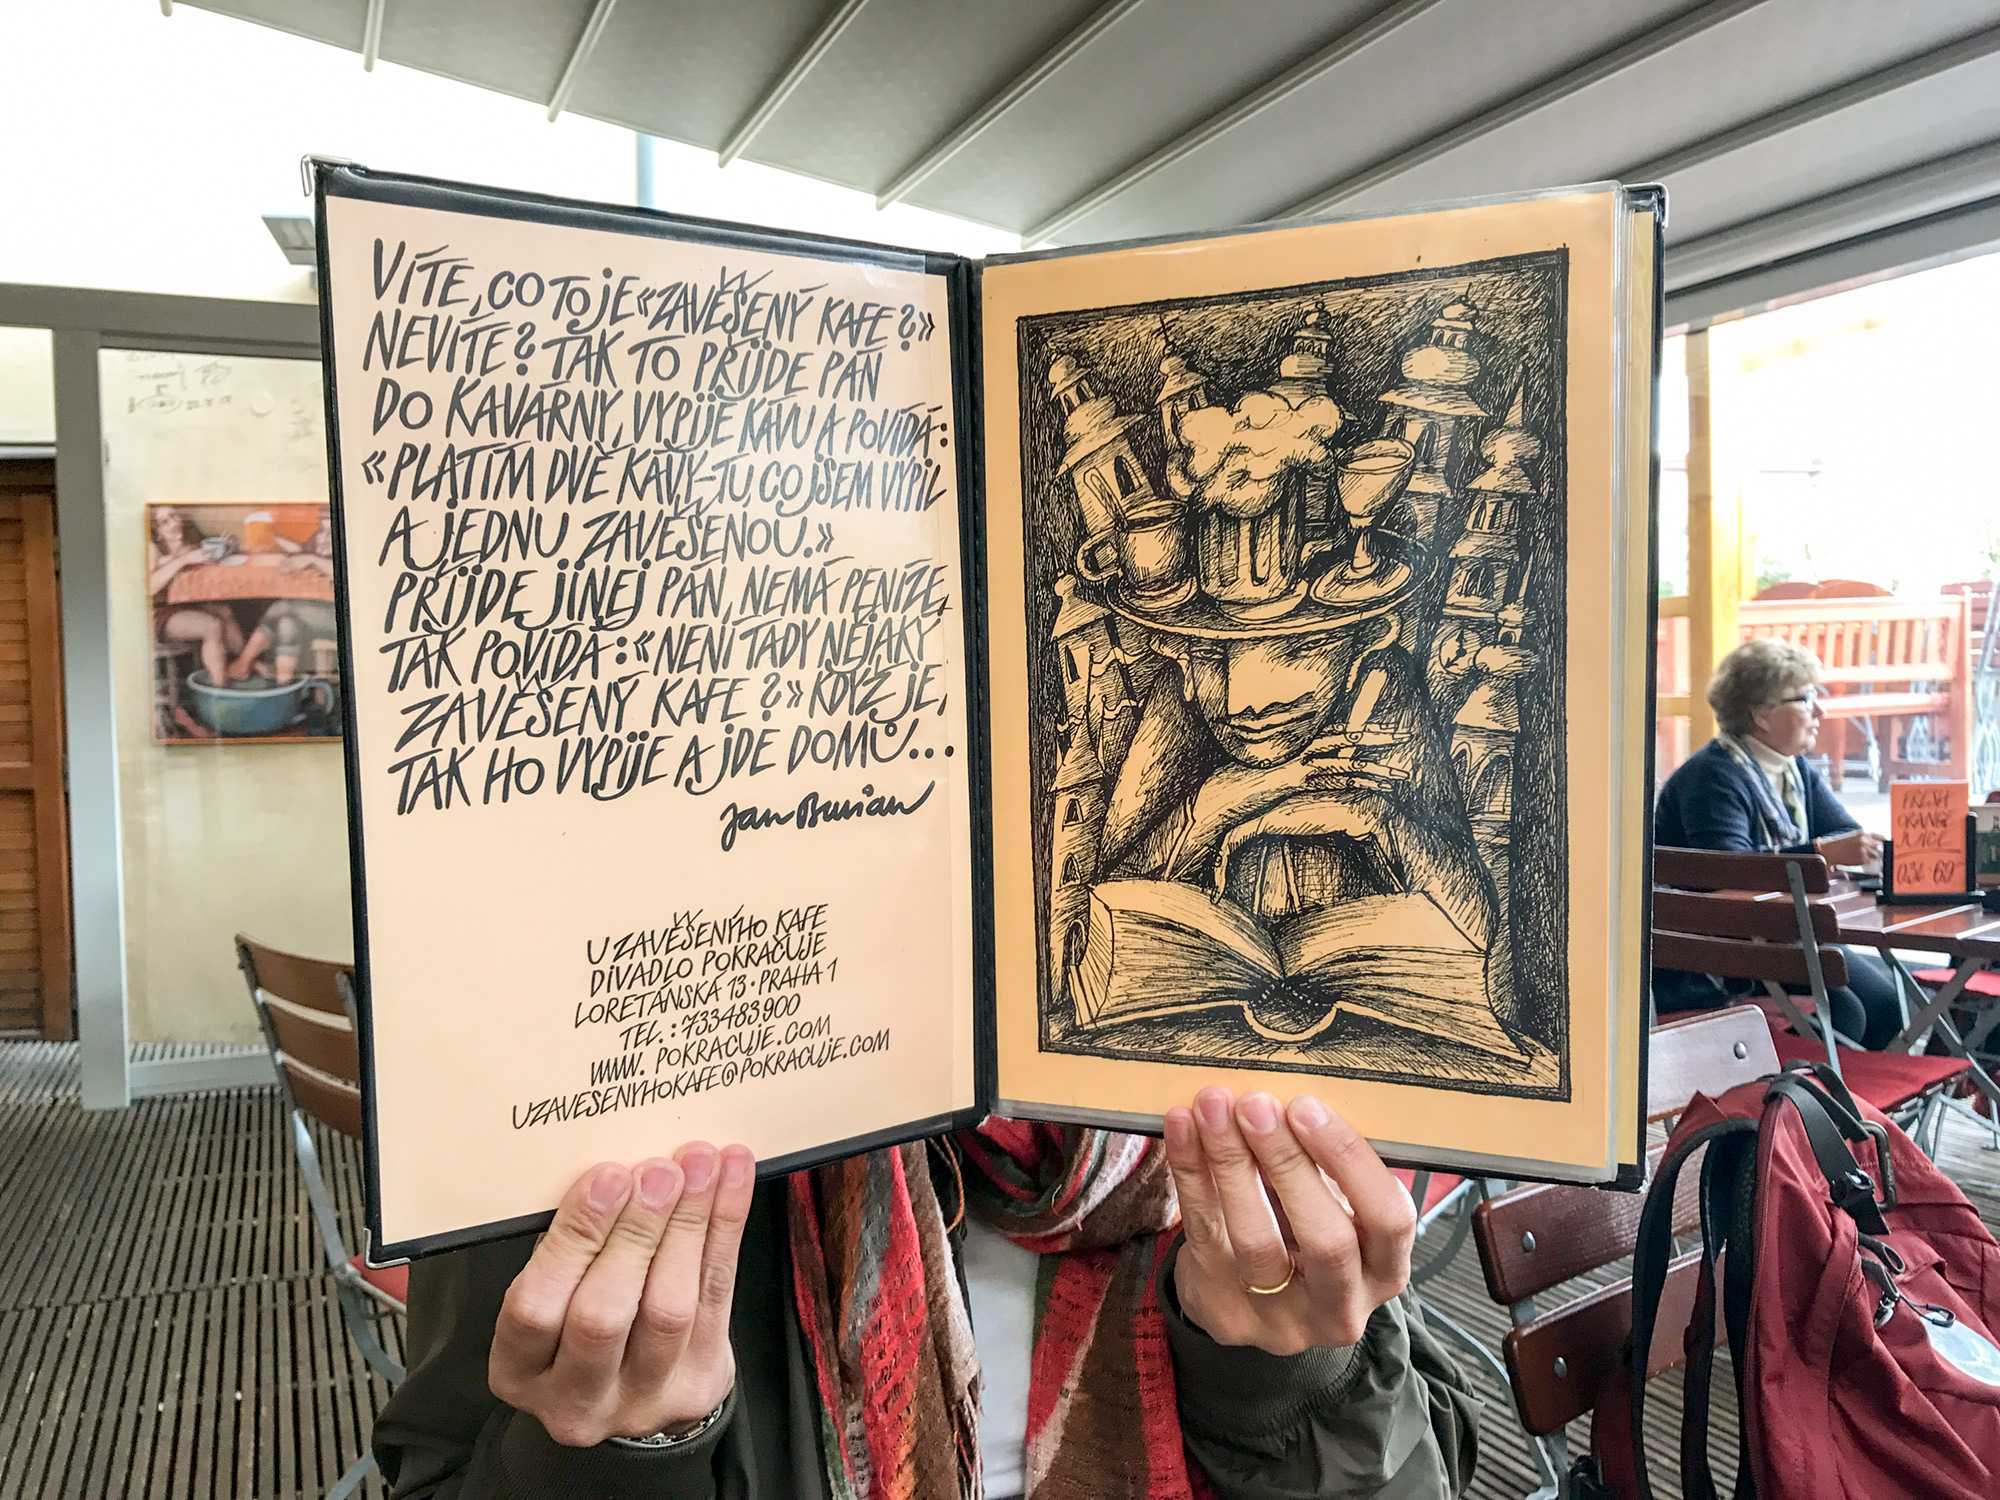 VÍTE, CO TO JE «ZAVĚŠENÝ KAFE?»
NEVÍTE? TAK TO PŘIJDE PÁN
DO KAVÁRNY, VYPIJE KÁVU A POVÍDÁ:
«PLATÍM DVĚ KÁVY–TU, CO JSEM VYPIL
A JEDNU ZAVĚŠENOU.»
PŘIJDE JINEJ PÁN, NEMÁ PENÍZE,
TAK POVÍDÁ: «NENÍ TADY NĚJAKÝ
ZAVĚŠENÝ KAFE?» KDYŽ JE,
TAK HO VYPIJE A JDE DOMŮ...
Jan Burian
U ZAVĚŠENÝHO KAFE
DIVADLO POKRAČUJE
LORETÁNSKÁ 13 · PRAHA 1
TEL.: 733483900
WWW. POKRACUJE.COM
UZAVESENYHOKAFE@POKRACUJE.COM
FRESH
ORANGE
JUICE